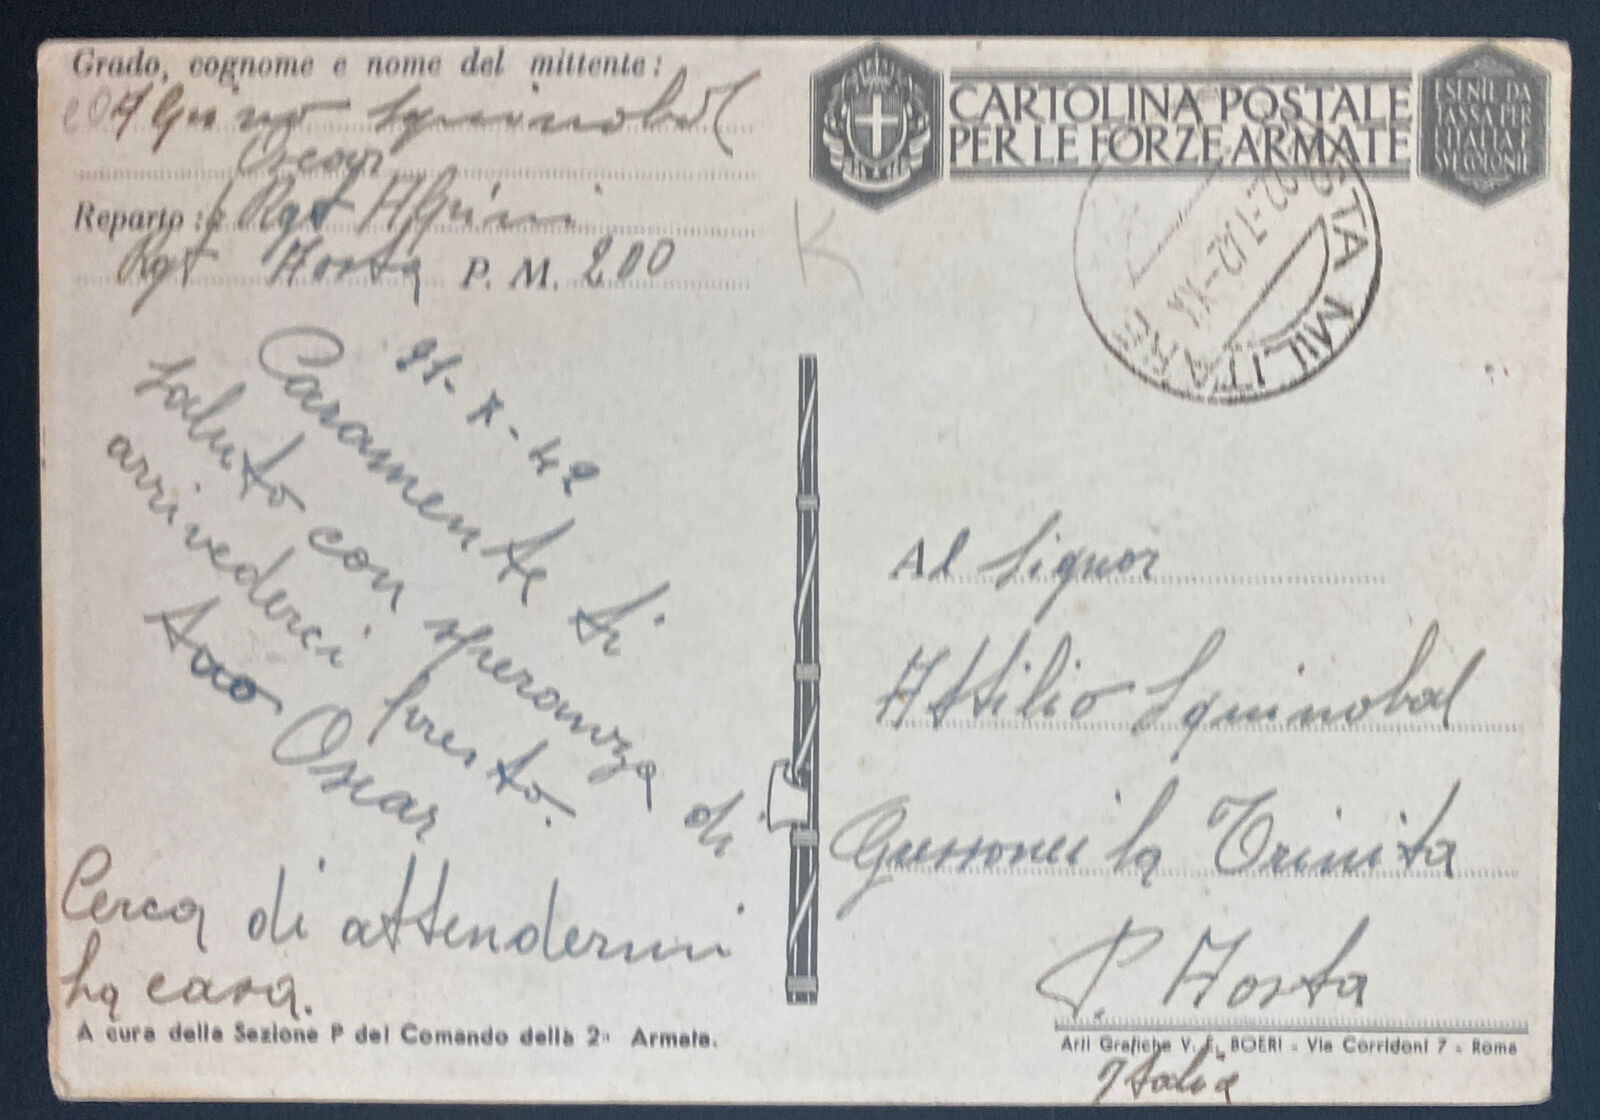 Grado, cognome e nome del mittente:
Squinobal
Oscar
Reparto: Rgt Alpini
Aosta P. M. 200
21-X-42
Caramente ti
saluto con speranza di
arrivederci presto.
tuo Oscar
Cerca di attendermi
cara.
A cura della Sezione P del Comando della 2ª Armata.
CARTOLINA POSTALE
PER LE FORZE ARMATE
ESENTE DA
TASSA PER
L'ITALIA E
SUE COLONIE
POSTA MILITARE
Al Signor
Attilio Squinobal
Gressonei la Trinita
P. Aosta
Arti Grafiche V. E. BOERI - Via Corridoni 7 - Roma
Italia
K